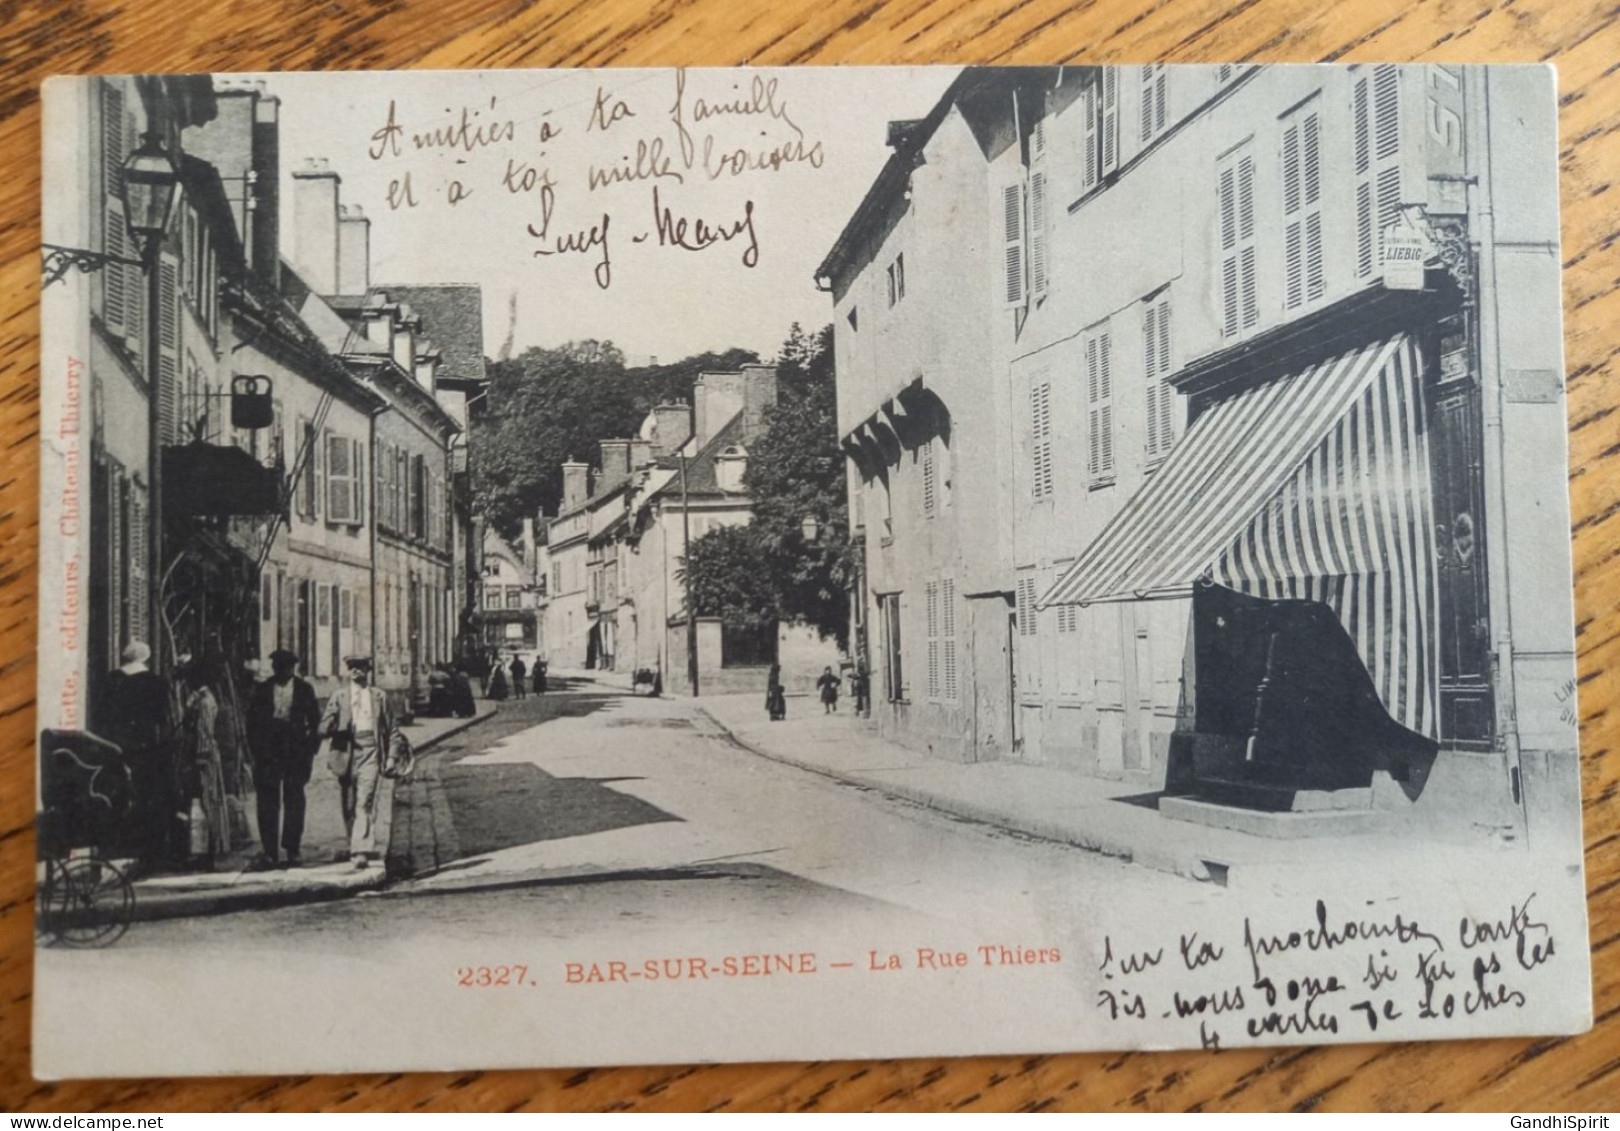 Amitiés à ta famille
et à toi mille baisers
Lucy - Mary
LIEBIG
...iette, éditeurs, Château-Thierry
2327. BAR-SUR-SEINE — La Rue Thiers
Sur ta prochaine carte
dis-nous donc si tu as les
4 cartes de Loches
GandhiSpirit